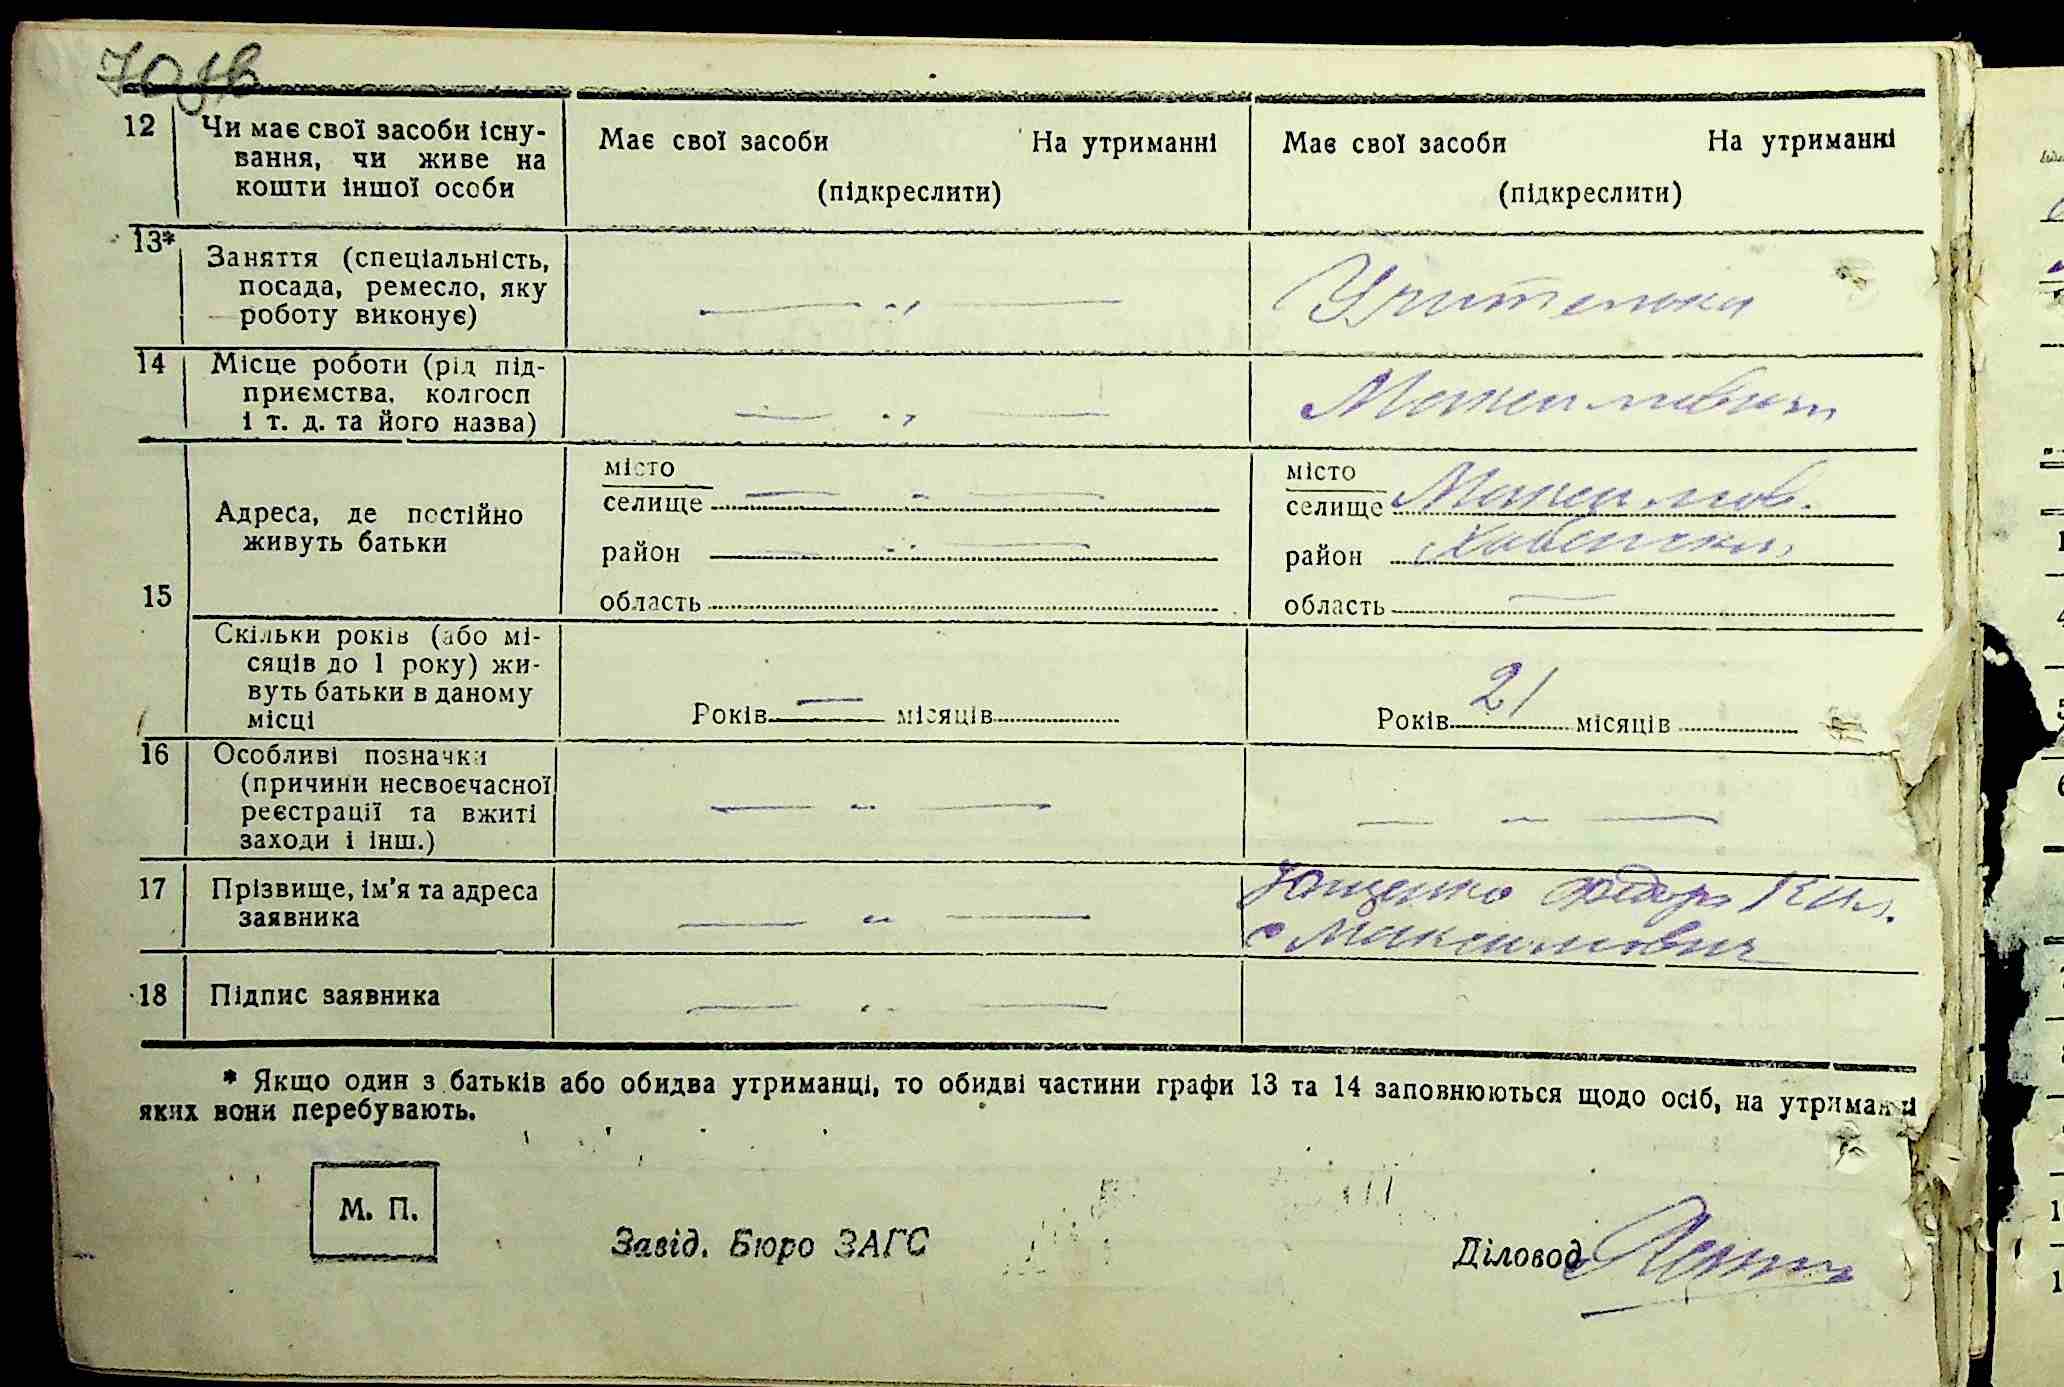 70 зв
12 Чи має свої засоби існу-
вання, чи живе на
кошти іншої особи
Має свої засоби На утриманні
(підкреслити)
Має свої засоби На утриманні
(підкреслити)
13* Заняття (спеціальність,
посада, ремесло, яку
роботу виконує)
— „ —
Учителька
14 Місце роботи (рід під-
приємства, колгосп
і т. д. та його назва)
— „ —
Максимович
15
Адреса, де постійно
живуть батьки
місто
селище — „ —
район — „ —
область
місто
селище Максимов.
район Хабенский
область —
Скільки років (або мі-
сяців до 1 року) жи-
вуть батьки в даному
місці
Років — місяців
Років 21 місяців
16 Особливі позначки
(причини несвоєчасної
реєстрації та вжиті
заходи і інш.)
— „ —
— „ —
17 Прізвище, ім'я та адреса
заявника
— „ —
Ющенко Федор
с Максимович
18 Підпис заявника
— „ —
* Якщо один з батьків або обидва утриманці, то обидві частини графи 13 та 14 заповнюються щодо осіб, на утриманні
яких вони перебувають.
М. П.
Завід. Бюро ЗАГС
Діловод